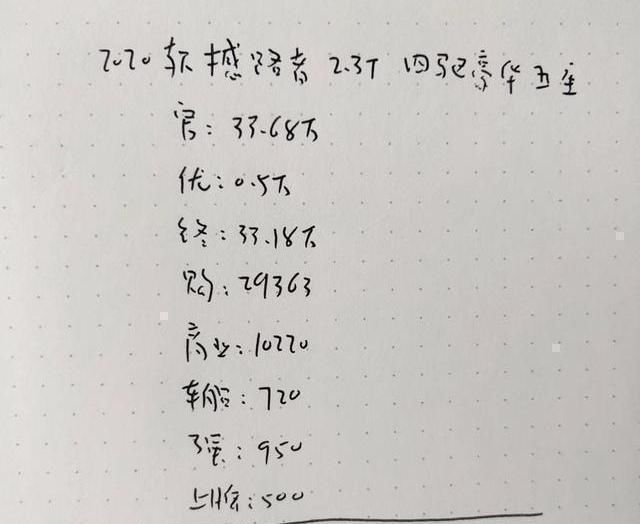 2020款撼路者 2.3T 四驱豪华五座
官: 33.68万
优: 0.5万
终: 33.18万
购: 29363
商业: 10220
车船: 720
强: 950
上牌: 500